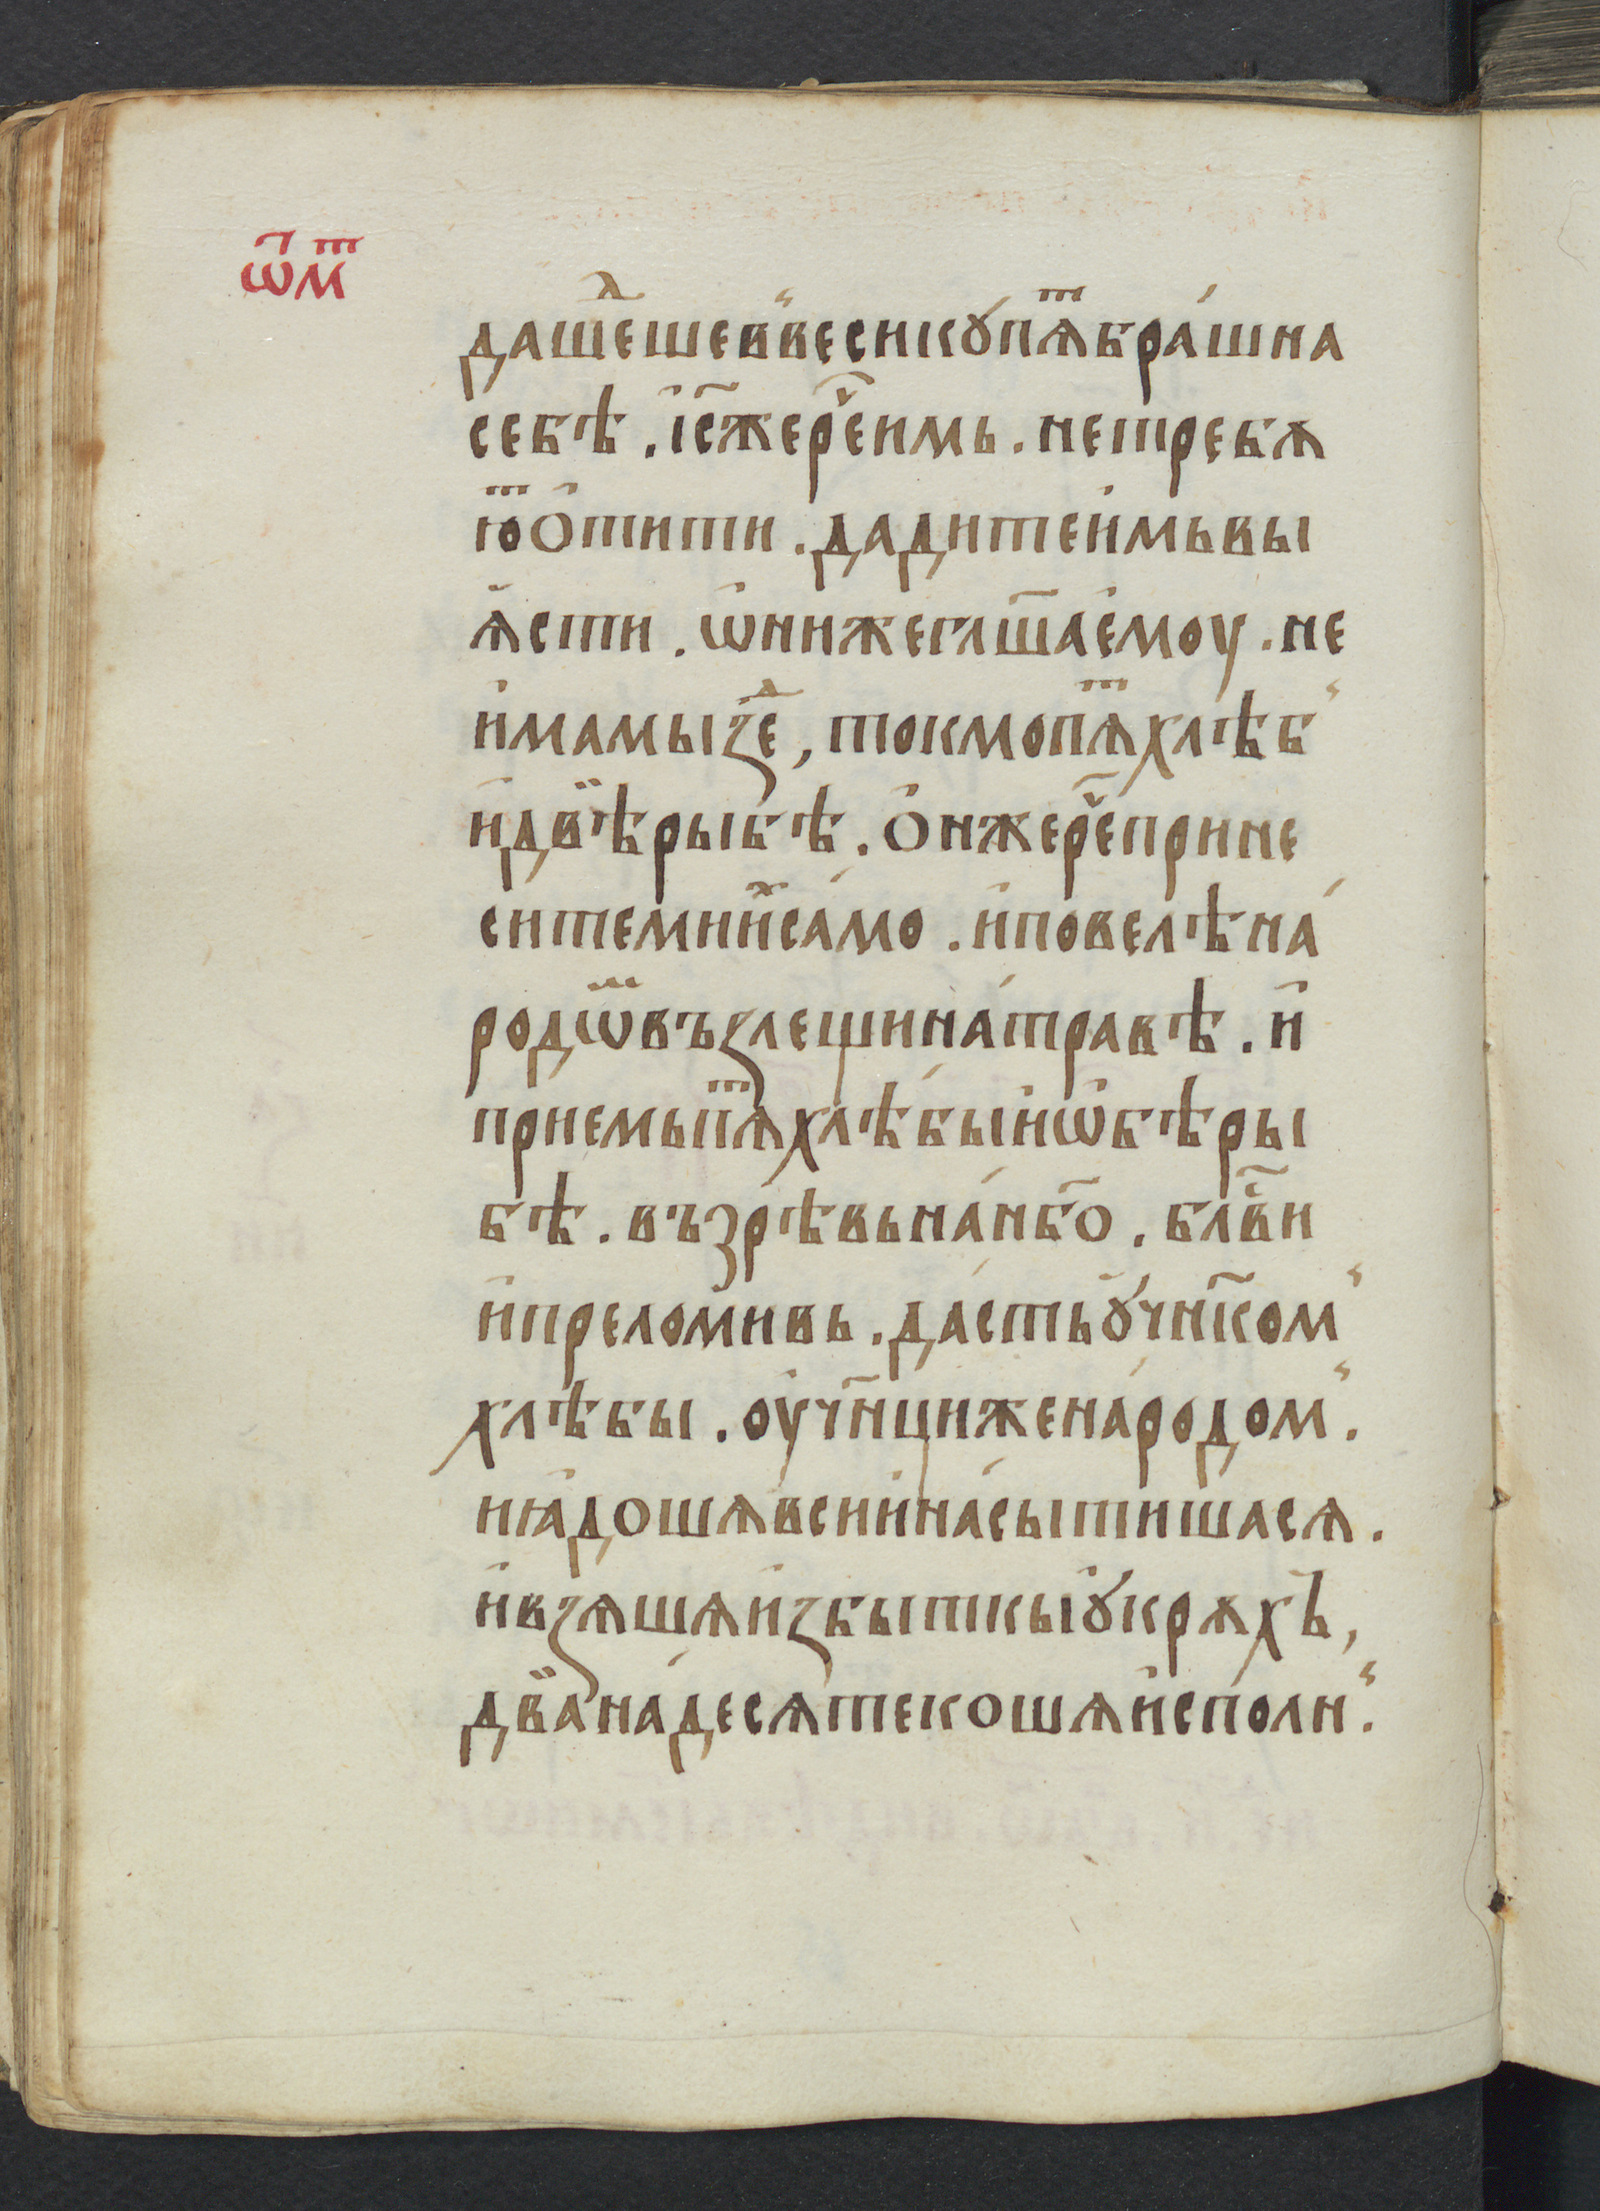 ѿ мⷮ
дашеⷣшев̾весикꙋпѧⷮбра́шна
себѣ . і҆с҃жереⷱ҇имь . нетребѧ
юⷮо҆тити . дадитеи҆мьвы
ꙗ҆сти . ѡ҆нижегл҃шає҆моу . не
и҆мамызⷣе , токмопѧⷮхлѣб̾
и҆двѣрыбѣ . о҆нжереⷱ҇прине
ситемииⷯса́мо . и҆повелѣна́
родѡⷨвъзлещина́травѣ . и҆
приемьпѧⷮхлѣбыи҆ѡ҆бѣры
бѣ . възрѣвьна́нб҃о . блⷭ҇ви
и҆преломивь . да́стьꙋ҆чн҃ком̾
хлѣбы . оу҆чн҃циженаро́дом̾ .
иꙗ҆дошѧвсии҆на́сытишасѧ .
и҆взѧшѧи҆збыткыꙋ҆крѫхъ ,
двана́десѧтекошѧи҆сполн̾ .